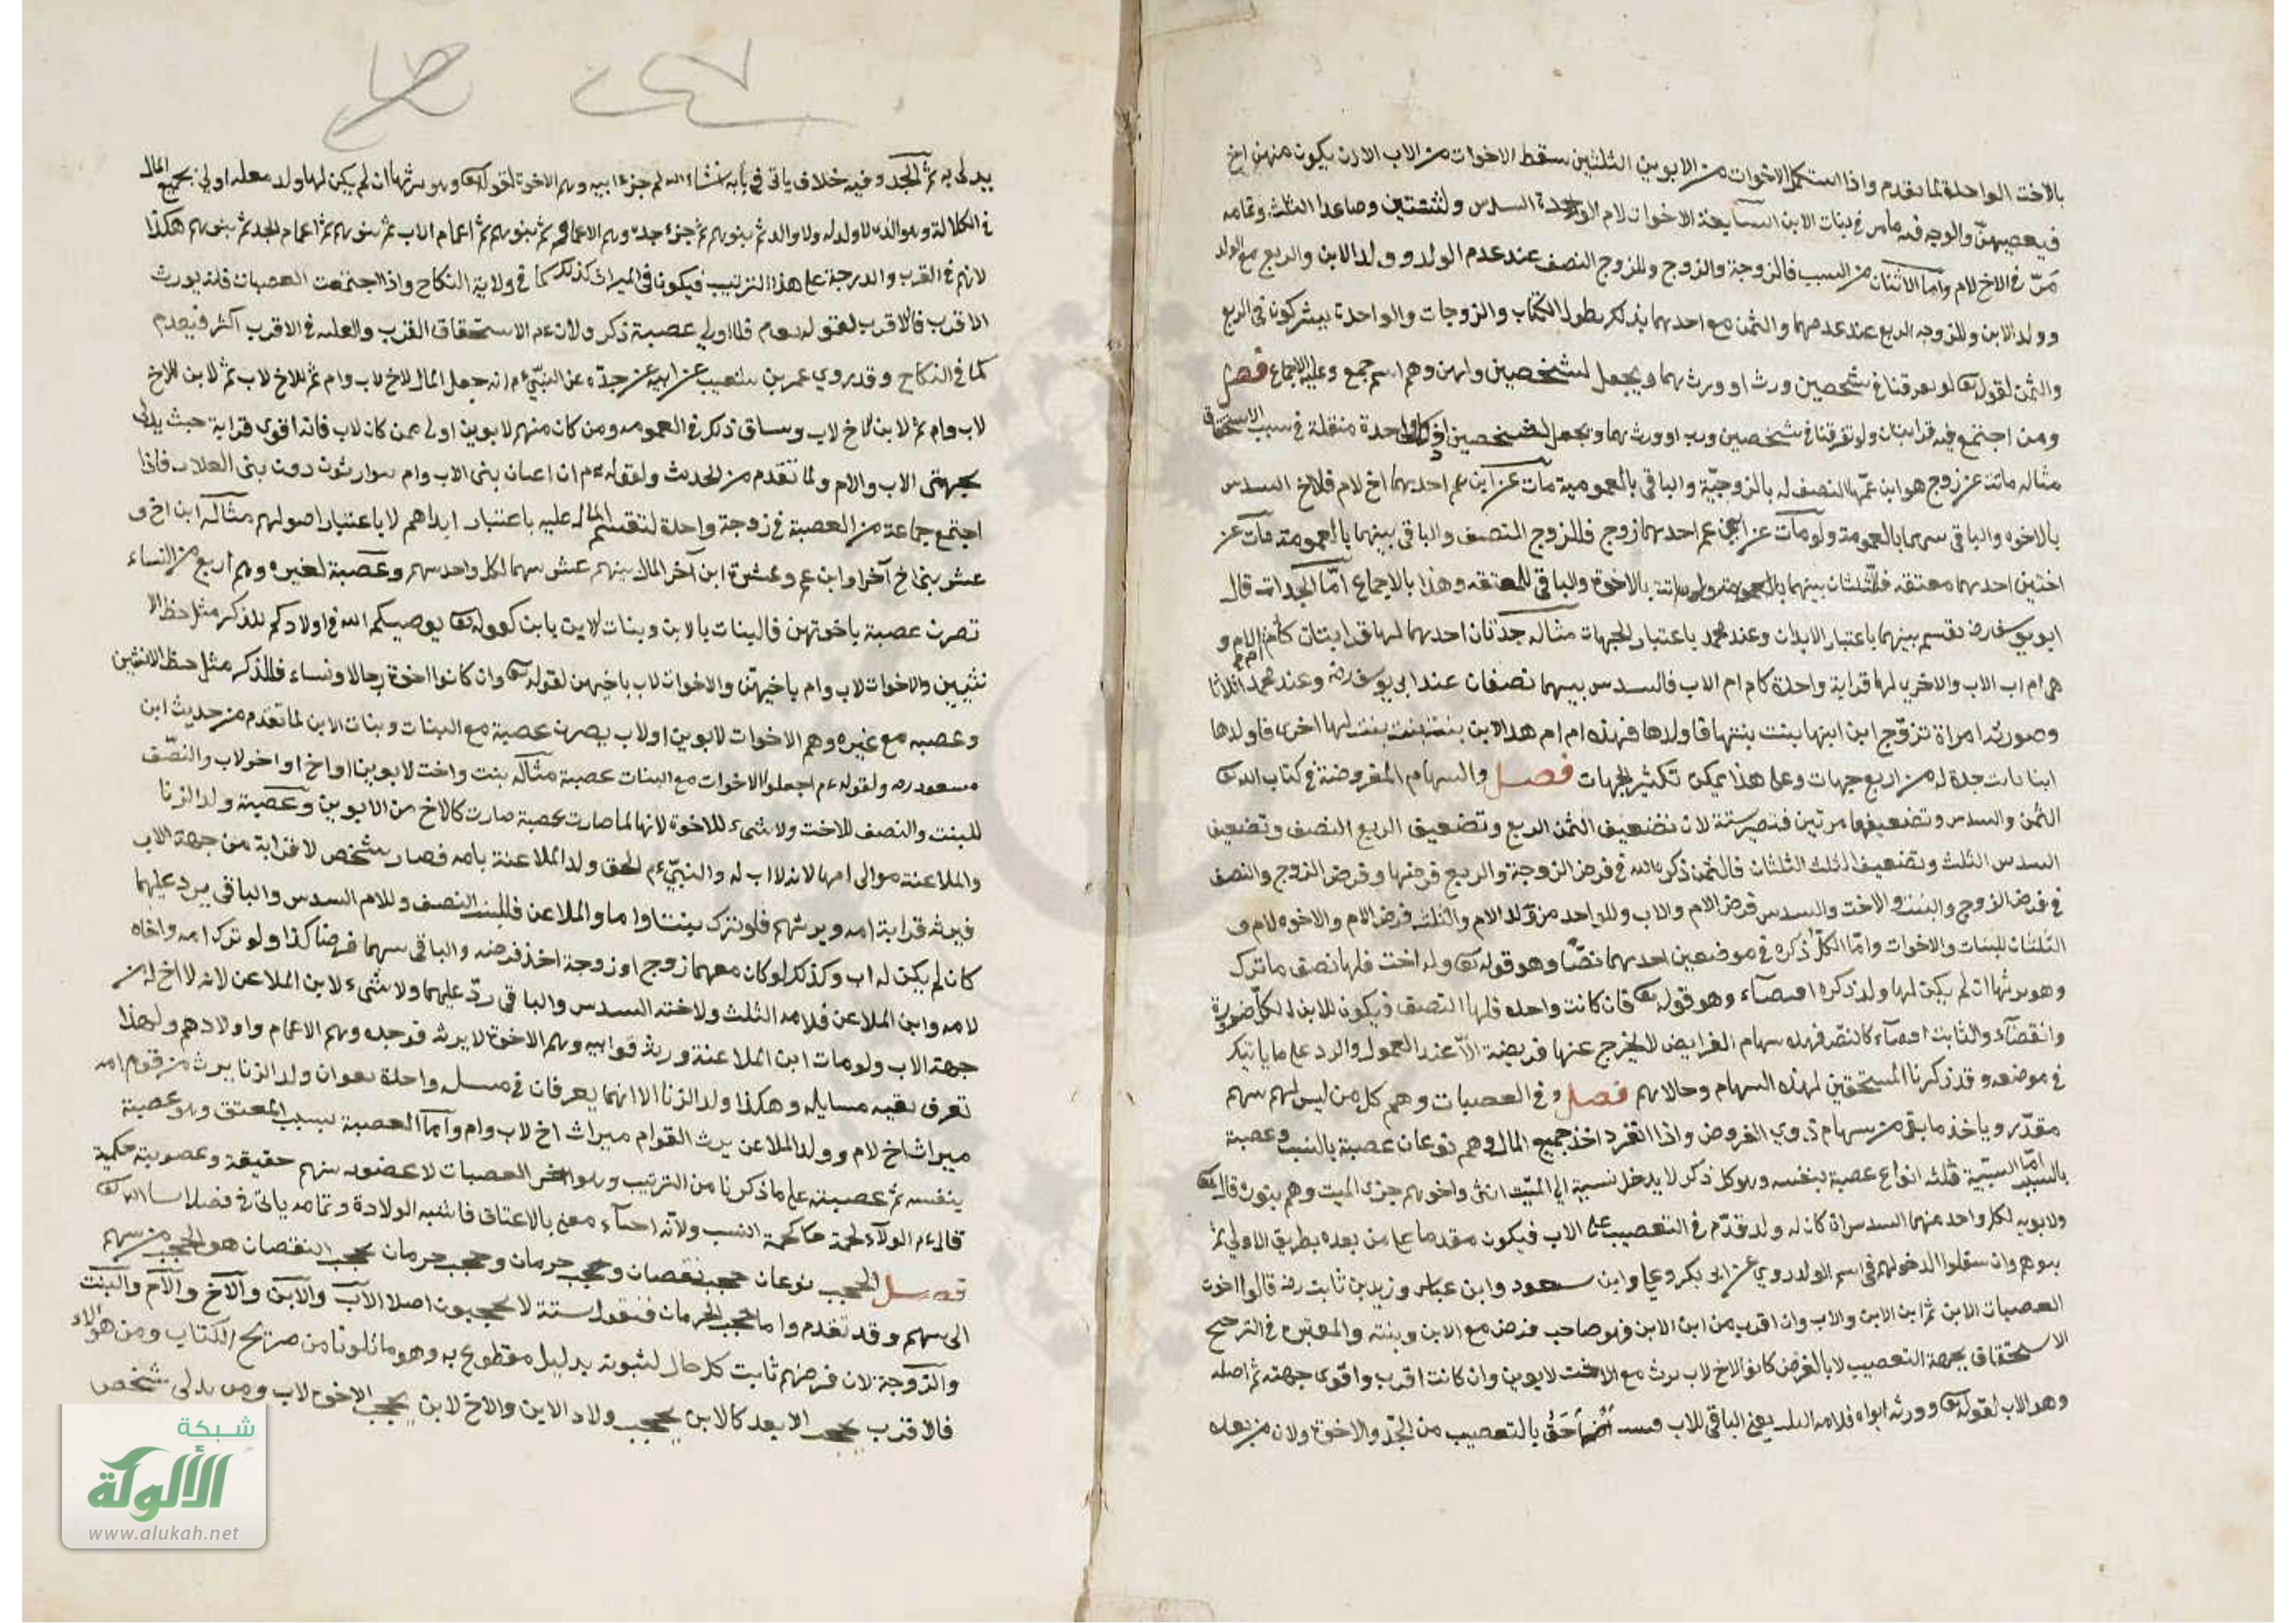 بالاخت الواحدة لما تقدم واذا استكمل الاخوات من الابوين الثلثين سقط الاخوات من الاب الا ان يكون منهن اخ
فيعصبهن والوجه فيه ما مر في بنات الابن السابعة الاخوات لام الواحدة السدس ولثنتين وصاعدا الثلث وتمامه
مر في الاخ لام واما الاثنان من السبب فالزوجة والزوج وللزوج النصف عند عدم الولد وولد الابن والربع مع الولد
وولد الابن وللزوجه الربع عند عدمهما والثمن مع احدهما بذلك نطق الكتاب والزوجات والواحدة يشتركون في الربع
والثمن لقوله تع لو تفرقنا في شخصين ورث او ورث بهما ويجعل لشخصين ولهن وهم اسم جمع وعليه الاجماع فصل
ومن اجتمع فيه قرابتان ولو تفرقنا في شخصين ورث او ورث بهما ويجعل لشخصين واحدة منفلة في سبب الاستحقاق
مثاله ماتت عن زوج هو ابن عمها النصف له بالزوجية والباقي بالعمومية مات عن ابني عم احدهما اخ لام فللاخ السدس
بالاخوه والباقي بينهما بالعمومة ولو مات عن ابني عم احدهما زوج فللزوج النصف والباقي بينهما بالعمومة مات عن
اختين احدهما معتقه فالثلثان بينهما بالاخوة والباقي للمعتقه وهذا بالاجماع اما الجدات قال
ابو يوسف رض تقسم بينهما باعتبار الابدان وعند محمد باعتبار الجهات مثاله جدتان احدهما لها قرابتان كام ام الام و
هي ام اب الاب والاخرى لها قرابة واحدة كام ام الاب فالسدس بينهما نصفان عند ابي يوسف رض وعند محمد اثلاثا
وصورته امراة تزوج ابن ابنها بنت بنتها فاولدها فهذه ام ام هذا الابن بنت بنت لها اخرى فاولدها
ابنا بانت جدة له من اربع جهات وعلى هذا يمكن تكثير الجهات فصل والسهام المفروضة في كتاب الله تع
الثمن والسدس وتضعيفهما مرتين فتصير ستة لان تضعيف الثمن الربع وتضعيف الربع النصف وتضعيف
السدس الثلث وتضعيف الثلث الثلثان فالثمن ذكره الله في فرض الزوجة والربع فرضها وفرض الزوج والنصف
في فرض الزوج والبنت والاخت والسدس فرض الام والاب وللواحد من ولد الام والثلث فرض الام والاخوه لام و
الثلثان للبنات والاخوات واما الكل ذكره في موضعين احدهما نصا وهو قوله تع وله اخت فلها نصف ما ترك
وهو يرثها ان لم يكن لها ولد ذكره اقتضاء وهو قوله تع فان كانت واحدة فلها النصف فيكون للابن الكل ضرورة
واقتضاء والثابت اقتضاء كالنص فهذه سهام الفرايض لا يخرج عنها فريضة الا عند العول والرد على ما ياتيك
في موضعه وقد ذكرنا المستحقين لهذه السهام وحالاتهم فصل في العصبات وهم كل من ليس لهم سهم
مقدر وياخذ ما بقي من سهام ذوي الفروض واذا انفرد اخذ جميع المال وهم نوعان عصبة بالنسب وعصبة
بالسبب اما النسبية فثلث انواع عصبة بنفسه وهو كل ذكر لا يدخل نسبته الى الميت انثى واخوهم جزء الميت وهم بنوه قال تع
ولابويه لكل واحد منهما السدس ان كان له ولد قدم في التعصيب على الاب فيكون مقدما على من بعده بطريق الاولى ثم
بنوهم وان سفلوا لدخولهم في اسم الولد روي عن ابي بكر وعلي وابن مسعود وابن عباس وزيد بن ثابت رض قالوا اخوت
العصبات الابن ثم ابن الابن والاب وان اقرب من ابن الابن فهو صاحب فرض مع الابن وبنته والمعتبره في الترجيح
الاستحقاق بجهة التعصيب لا بالفرض كانوا الاخ لاب يرث مع الاخت لابوين وان كانت اقرب واقوى جهته ثم اصله
وهو الاب لقوله تع وورثه ابواه فلامه الثلث يعني الباقي للاب احق بالتعصيب من الجد والاخوة ولان من بعده
يدلى به ثم الجد وفيه خلاف ياتي في بابه انشاء الله ثم جزء ابيه وهم الاخوة لقوله تع وهو يرثها ان لم يكن لها ولد جعله اولى بجميع المال
في الكلالة وهو الذي لا ولد له ولا والد ثم بنوهم ثم جزء جده وهم الاعمام ثم بنوهم ثم اعمام الاب ثم بنوهم ثم اعمام الجد ثم بنوهم هكذا
لانهم في القرب والدرجة على هذا الترتيب فيكونا في الميراث كذلك كما في ولاية النكاح واذا اجتمعت العصبات فانه يورث
الاقرب فالاقرب لقوله ع م فلاولى عصبة ذكر ولان علة الاستحقاق القرب والعلة في الاقرب اكثر فيقدم
كما في النكاح وقد روي عمر بن شعيب عن ابيه عن جده عن النبي ع م انه جعل المال لاخ لاب وام ثم للاخ لاب ثم لابن للاخ
لاب وام ثم لابن لاخ لاب وساق ذلك في العمومه ومن كان منهم لابوين اولى ممن كان لاب فانه اقوى قرابة حيث يدلى
بجهتى الاب والام ولما تقدم من الحديث ولقوله ع م ان اعيان بنى الاب وام يتوارثون دون بنى العلات فاذا
اجتمع جماعة من العصبة في زوجة واحدة لتقسم المال عليه باعتبار ابدانهم لا باعتبار اصولهم مثاله ابن اخ و
عشر بني اخ آخر او ابن عم وعشرة ابن آخر المال بينهم عشر سهما لكل واحد سهم وعصبة لغيره وهم اربع من النساء
تصرن عصبة باخوتهن فالبنات بالابن وبنات لابن بابن كقوله تع يوصيكم الله في اولادكم للذكر مثل حظ الا
نثيين والاخوات لاب وام باخيهن والاخوات لاب باخيهن لقوله تع وان كانوا اخوة رجالا ونساء فللذكر مثل حظ الانثيين
وعصبه مع غيره وهم الاخوات لابوين او لاب يصرن عصبة مع البنات وبنات الابن لما تقدم من حديث ابن
مسعود رض ولقوله ع م اجعلوا الاخوات مع البنات عصبة مثاله بنت واخت لابوين او اخ او اخر لاب والنصف
للبنت والنصف للاخت ولا شيء للاخوة لانها لما صارت عصبة صارت كالاخ من الابوين وعصبة ولد الزنا
والملاعنة موالى امها لانه لا اب له والنبي ع م الحق ولد الملاعنة بامه فصار شخص لا قرابة من جهة الاب
فيرثه قرابة امه ويرثهم فلو ترك بنتا واما والملاعن فللبنت النصف وللام السدس والباقي يرد عليهما
كان لم يكن له اب وكذلك لو كان معهما زوج او زوجة اخذ فرضه والباقي سهما فرضا كذا ولو ترك امه واخاه
لامه وابن الملاعن فلامه الثلث ولاخته السدس والباقي رد عليهما ولا شيء لابن الملاعن لانه لا اخ له من
جهة الاب ولو مات ابن الملاعنة ورث قوم ابيه وهم الاخوة لا يرثه قوم جده وهم الاعمام واولادهم ولهذا
تعرف بقيه مسايله وهكذا ولد الزنا الا انهما يفرقان في مسئلة واحدة وهو ان ولد الزنا يرث من قوم امه
ميراث اخ لام وولد الملاعن يرث القوام ميراث اخ لاب وام واما العصبة بسبب المعتق وهو عصبة
بنفسه ثم عصبته على ما ذكرنا من الترتيب وهو اخر العصبات لا عضوبه منهم حقيقة وعصوبته حكمية
قال ع م الولاء لحمة كلحمة النسب ولانه احياء معنى بالاعتاق فاشبه الولادة وتمامه ياتي في فصل انشا الله تع
فصل الحجب نوعان حجب نقصان وحجب حرمان وحجب حرمان حجب النقصان هو الحجب من سهم
الى سهم وقد تقدم واما حجب الحرمان فنقول ستة لا يحجبون اصلا الاب والابن والاخ والام والبنت
والزوجة لان فرضهم ثابت كل حال لثبوته بدليل مقطوع به وهو ما تلونا من صريح الكتاب ومن هؤلاء
فالاقرب يحجب الابعد كالابن يحجب ولاد الابن والاخ لابن يحجب الاخوة لاب ومن يدلى شخص
شبكة
الألوكة
www.alukah.net